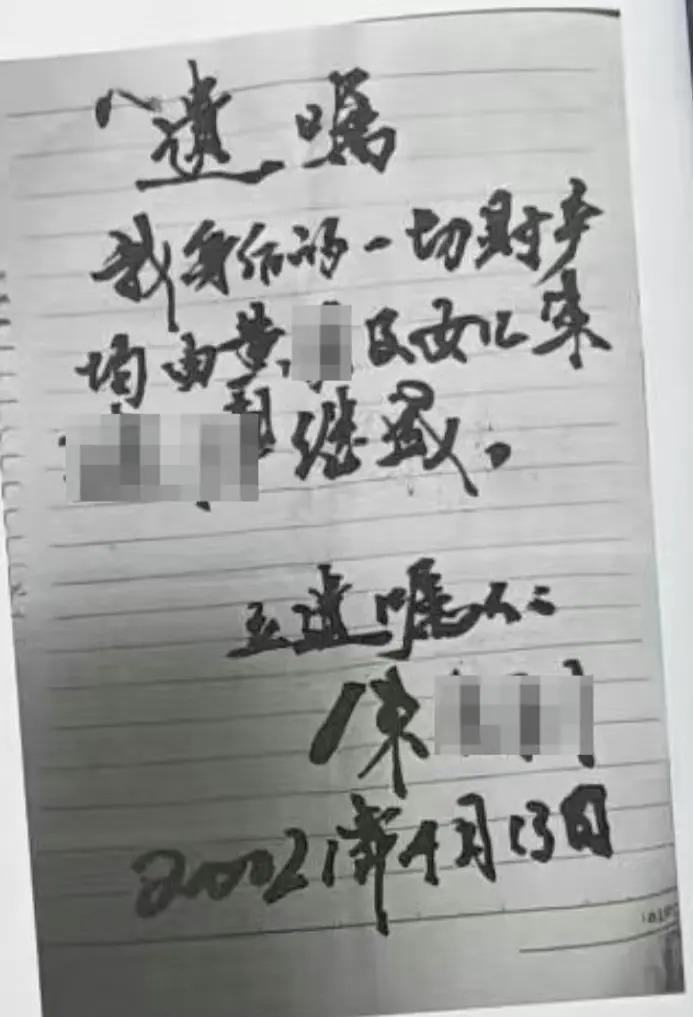 遗嘱
我身后的一切财产
均由黄 及女儿
继承。
立遗嘱人:
20021年4月13日